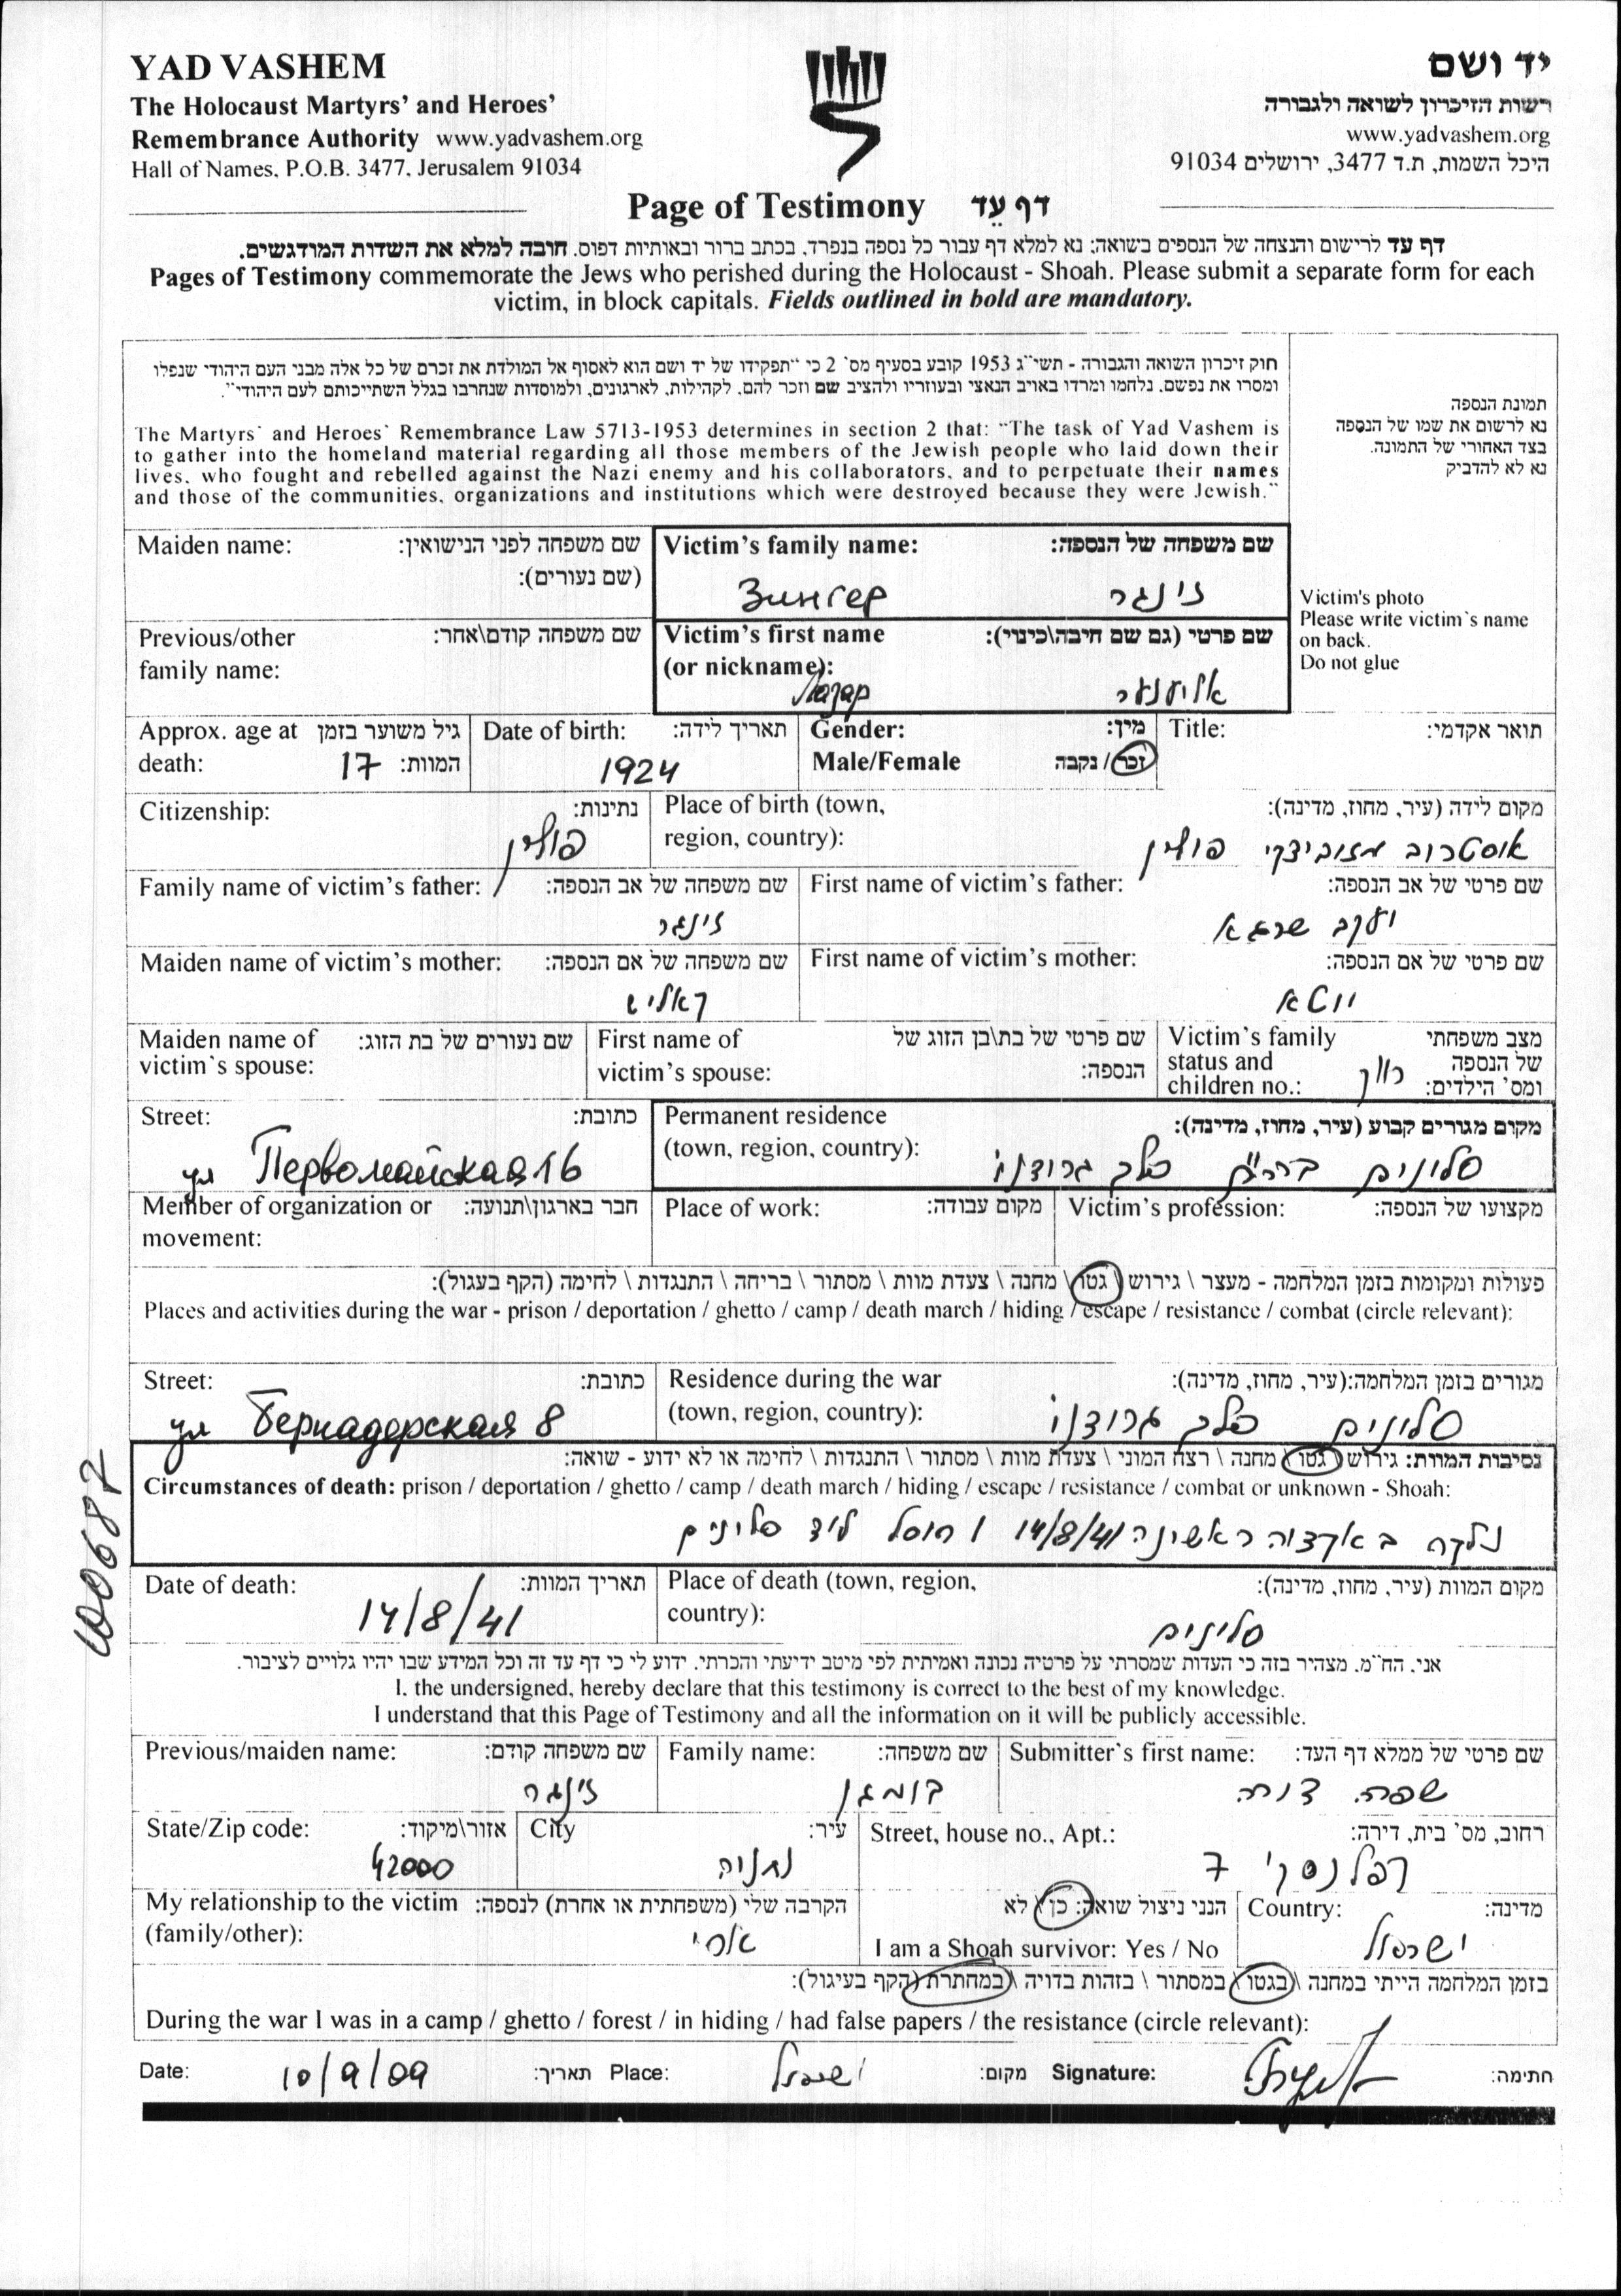 YAD VASHEM
The Holocaust Martyrs' and Heroes'
Remembrance Authority www.yadvashem.org
Hall of Names, P.O.B. 3477, Jerusalem 91034
יד ושם
רשות הזיכרון לשואה ולגבורה
www.yadvashem.org
היכל השמות, ת.ד 3477, ירושלים 91034
Page of Testimony דף עֵד
דף עד לרישום והנצחה של הנספים בשואה; נא למלא דף עבור כל נספה בנפרד, בכתב ברור ובאותיות דפוס. חובה למלא את השדות המודגשים.
Pages of Testimony commemorate the Jews who perished during the Holocaust - Shoah. Please submit a separate form for each
victim, in block capitals. Fields outlined in bold are mandatory.
חוק זיכרון השואה והגבורה - תשי"ג 1953 קובע בסעיף מס' 2 כי "תפקידו של יד ושם הוא לאסוף אל המולדת את זכרם של כל אלה מבני העם היהודי שנפלו
ומסרו את נפשם, נלחמו ומרדו באויב הנאצי ובעוזריו ולהציב שם וזכר להם, לקהילות, לארגונים, ולמוסדות שנחרבו בגלל השתייכותם לעם היהודי".
The Martyrs' and Heroes' Remembrance Law 5713-1953 determines in section 2 that: "The task of Yad Vashem is
to gather into the homeland material regarding all those members of the Jewish people who laid down their
lives, who fought and rebelled against the Nazi enemy and his collaborators, and to perpetuate their names
and those of the communities, organizations and institutions which were destroyed because they were Jewish."
תמונת הנספה
נא לרשום את שמו של הנספה
בצד האחורי של התמונה.
נא לא להדביק
Victim's photo
Please write victim's name
on back.
Do not glue
Maiden name: שם משפחה לפני הנישואין:
(שם נעורים):
Victim's family name: שם משפחה של הנספה:
Зингер זינגר
Previous/other שם משפחה קודם\אחר:
family name:
Victim's first name שם פרטי (גם שם חיבה\כינוי):
(or nickname):
Лазар אליענער
Approx. age at גיל משוער בזמן
death: 17 המוות:
Date of birth: תאריך לידה:
1924
Gender: מין:
Male/Female זכר / נקבה
Title: תואר אקדמי:
Citizenship: נתינות:
פולין
Place of birth (town, מקום לידה (עיר, מחוז, מדינה):
region, country):
אוסטרוב מזוביצקי פולין
Family name of victim's father: שם משפחה של אב הנספה:
זינגר
First name of victim's father: שם פרטי של אב הנספה:
יעקב שרגא
Maiden name of victim's mother: שם משפחה של אם הנספה:
קאליש
First name of victim's mother: שם פרטי של אם הנספה:
יוטא
Maiden name of שם נעורים של בת הזוג:
victim's spouse:
First name of שם פרטי של בת\בן הזוג של
victim's spouse: הנספה:
Victim's family מצב משפחתי
status and של הנספה
children no.: ומס' הילדים:
רווק
Street: כתובת:
ул Первомайская 16
Permanent residence מקום מגורים קבוע (עיר, מחוז, מדינה):
(town, region, country):
סלונים ברה"מ פלך גרודנו
Member of organization or חבר בארגון\תנועה:
movement:
Place of work: מקום עבודה:
Victim's profession: מקצועו של הנספה:
פעולות ומקומות בזמן המלחמה - מעצר \ גירוש \ גטו \ מחנה \ צעדת מוות \ מסתור \ בריחה \ התנגדות \ לחימה (הקף בעגול):
Places and activities during the war - prison / deportation / ghetto / camp / death march / hiding / escape / resistance / combat (circle relevant):
Street: כתובת:
ул Бернадерская 8
Residence during the war מגורים בזמן המלחמה:(עיר, מחוז, מדינה):
(town, region, country):
סלונים פלך גרודנו
נסיבות המוות: גירוש \ גטו \ מחנה \ רצח המוני \ צעדת מוות \ מסתור \ התנגדות \ לחימה או לא ידוע - שואה:
Circumstances of death: prison / deportation / ghetto / camp / death march / hiding / escape / resistance / combat or unknown - Shoah:
נלקח באקציה ראשינה 14/8/41 וחוסל ליד סלונים
Date of death: תאריך המוות:
14/8/41
Place of death (town, region, מקום המוות (עיר, מחוז, מדינה):
country):
סלונים
אני, הח"מ, מצהיר בזה כי העדות שמסרתי על פרטיה נכונה ואמיתית לפי מיטב ידיעתי והכרתי. ידוע לי כי דף עד זה וכל המידע שבו יהיו גלויים לציבור.
I, the undersigned, hereby declare that this testimony is correct to the best of my knowledge.
I understand that this Page of Testimony and all the information on it will be publicly accessible.
Previous/maiden name: שם משפחה קודם:
זינגר
Family name: שם משפחה:
בומגן
Submitter's first name: שם פרטי של ממלא דף העד:
שפרה
State/Zip code: אזור\מיקוד:
42000
City עיר:
נתניה
Street, house no., Apt.: רחוב, מס' בית, דירה:
רפלנסקי 7
My relationship to the victim הקרבה שלי (משפחתית או אחרת) לנספה:
(family/other):
אחי
הנני ניצול שואה: כן \ לא
I am a Shoah survivor: Yes / No
Country: מדינה:
ישראל
בזמן המלחמה הייתי במחנה \ בגטו \ במסתור \ בזהות בדויה \ במחתרת (הקף בעיגול):
During the war I was in a camp / ghetto / forest / in hiding / had false papers / the resistance (circle relevant):
Date: 10/9/09 תאריך: Place: ישראל מקום: Signature: חתימה:
100687